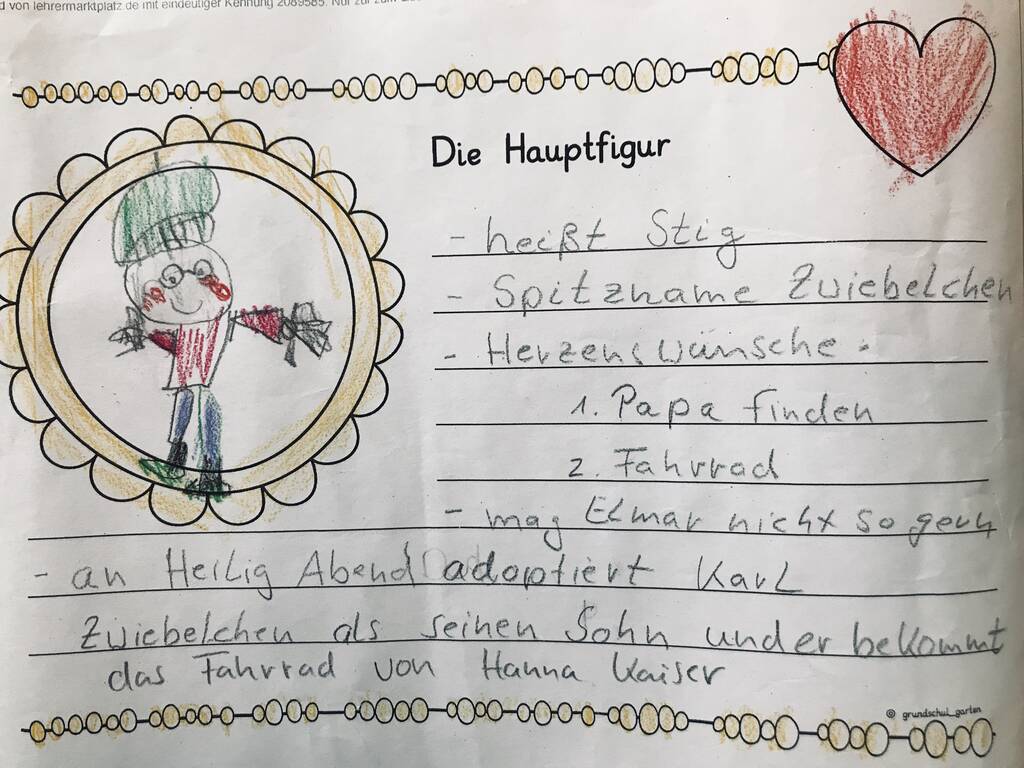 d von lehrermarktplatz.de mit eindeutiger Kennung 2089585. Nur zur
Die Hauptfigur
- heißt Stig
- Spitzname Zwiebelchen
- Herzenswünsche:
1. Papa finden
2. Fahrrad
- mag Elmar nicht so gern
- an Heilig Abend adoptiert Karl
Zwiebelchen als seinen Sohn und er bekommt
das Fahrrad von Hanna Kaiser
© grundschul_garten